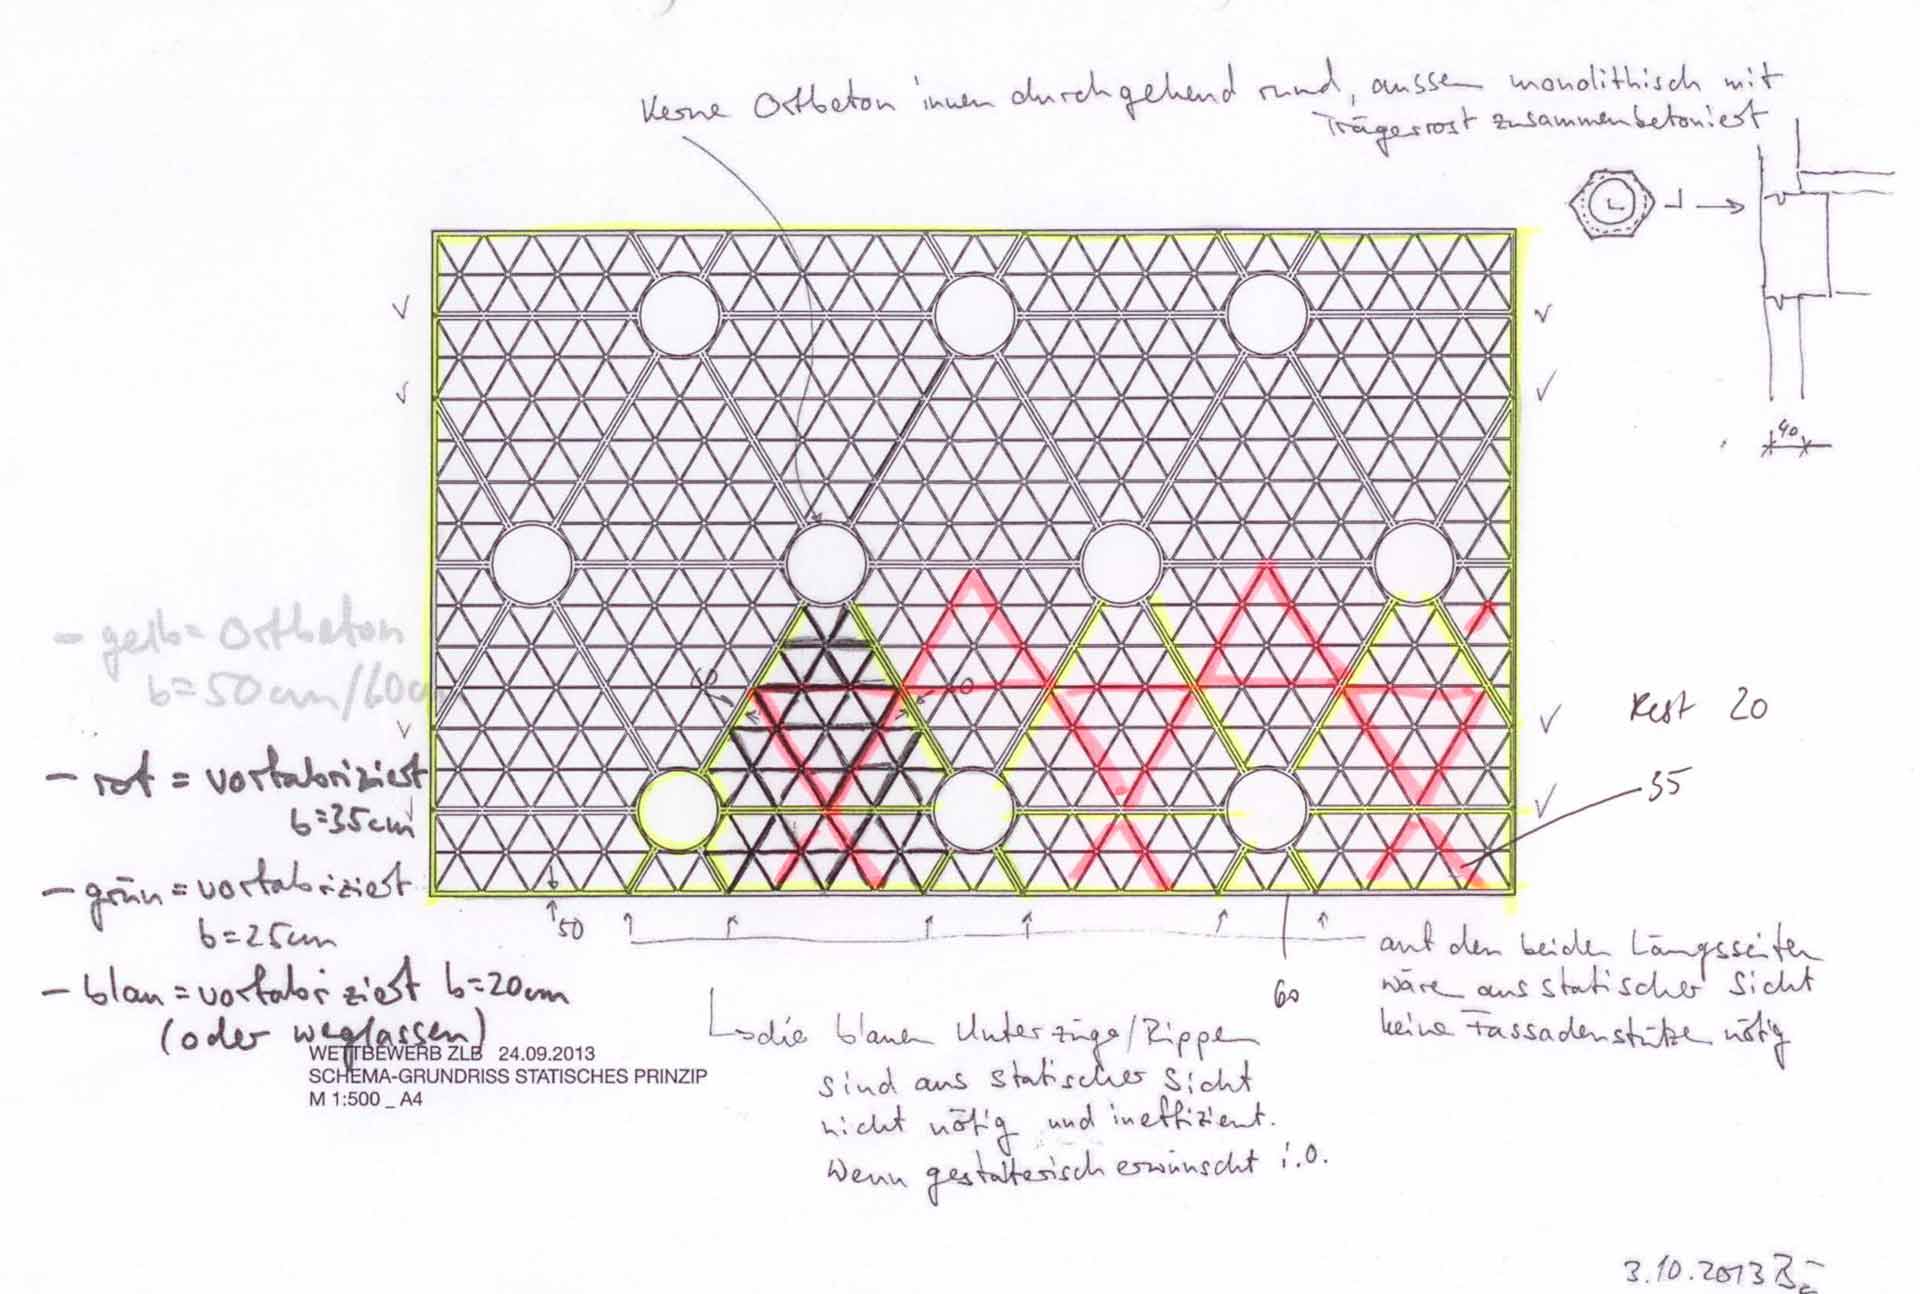 Kerne Ortbeton innen durchgehend rund, aussen monolithisch mit
Trägerrost zusammenbetoniert
40
- gelb = Ortbeton
b=50cm/60cm
60
Rest 20
- rot = vorfabriziert
b=35cm
35
- grün = vorfabriziert
b=25cm
50
- blau = vorfabriziert b=20cm
(oder weglassen)
60
auf den beiden Längsseiten
wäre aus statischer Sicht
keine Fassadenstütze nötig
die blauen Unterzüge/Rippen
sind aus statischer Sicht
nicht nötig und ineffizient.
Wenn gestalterisch erwünscht i.O.
WETTBEWERB ZLB 24.09.2013
SCHEMA-GRUNDRISS STATISCHES PRINZIP
M 1:500 _ A4
3.10.2013